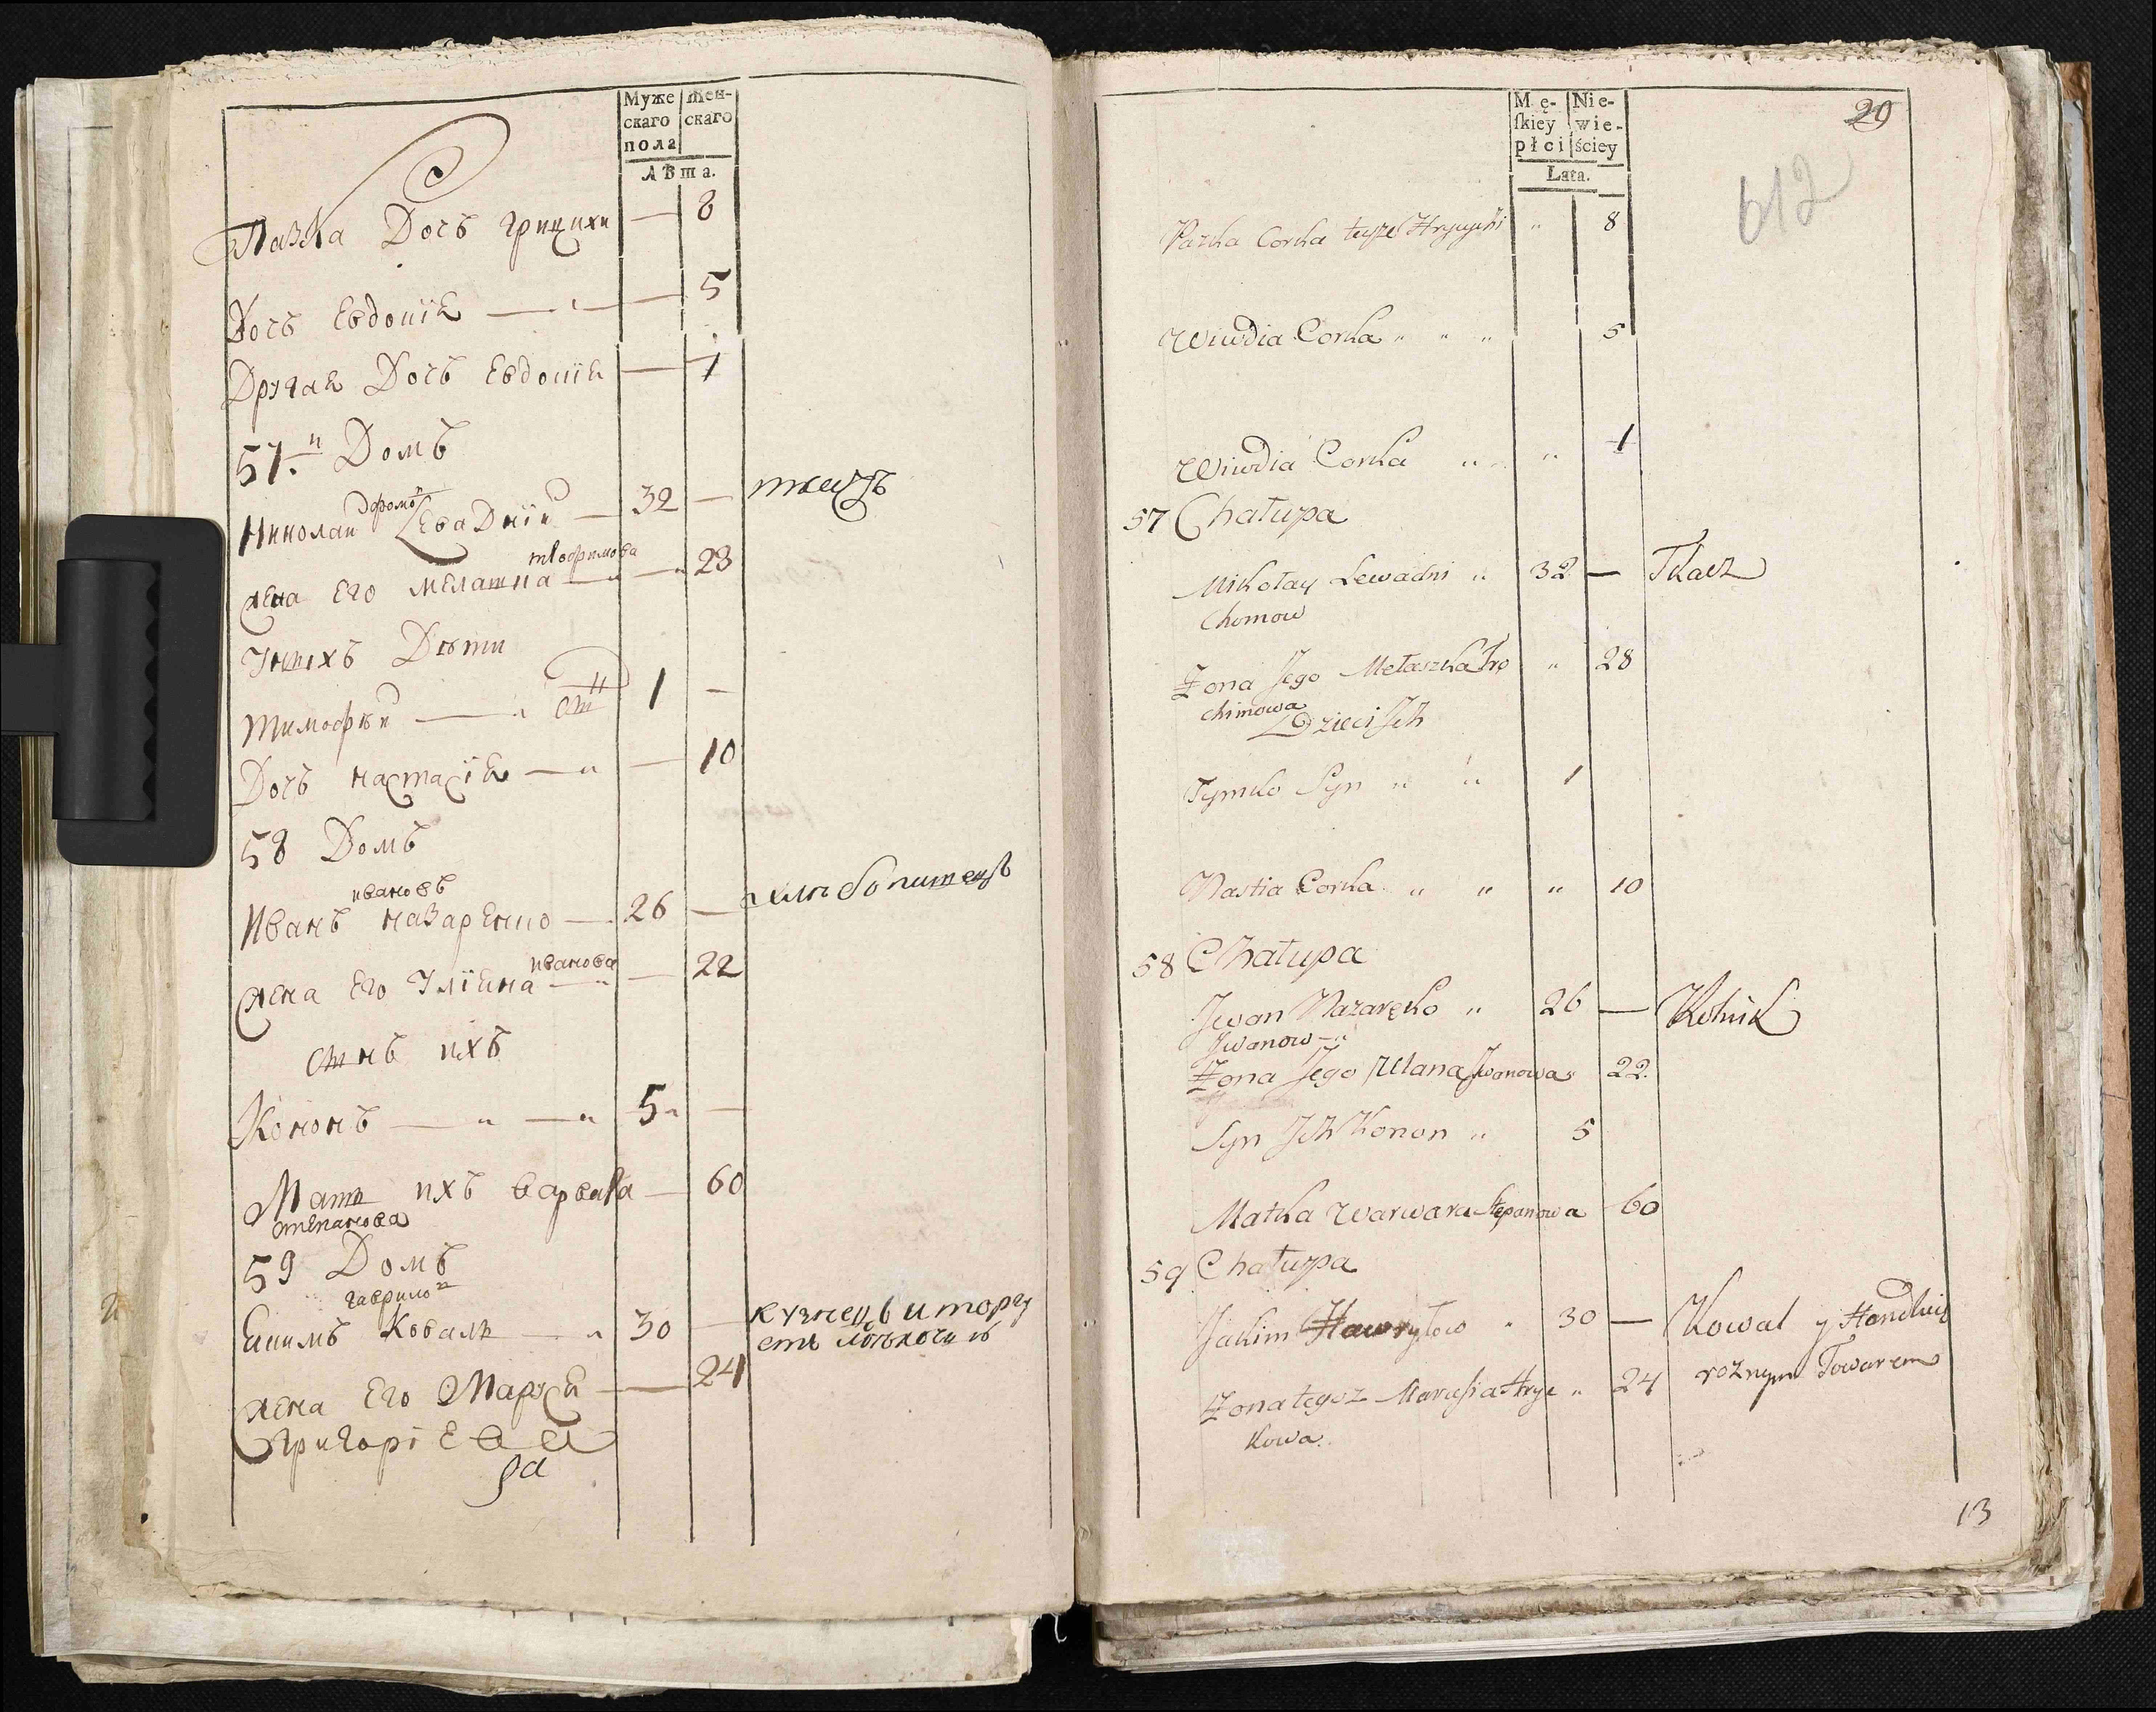 Муже
скаго
пола
Жен-
скаго
Лѣта.
Пазка Дочь грицихи — 8
Дочь Евдокія — — 5
Другая Дочь Евдокія — 1
57.й Домъ
Николай Левадній — 32 — ткачъ
жена Его меланка — 23
У нихъ Дѣти
тимофѣй — 1 —
Дочь настасія — — 10
58 Домъ
ивановъ
Иванъ назаренко — 26 — хлѣбопашецъ
иванова
жена Его Уліяна — — 22
снъ ихъ
Кононъ — — 5 —
Мать ихъ варвара — 60
степанова
59 Домъ
гаврило
Екимъ Коваль — 30 — кузнецъ и торгу
етъ
жена Его Маруся — 24
григоріева
Mę-
ſkiey
płci
Nie-
wie-
ściey
Lata.
29
612
Pazka Corka teyże Hrycychi " 8
Wiwdia Corka " " " 5
Wiwdia Corka " " 1
57 Chałupa
Mikołay Lewadni " 32 — Tkacz
Chomow
Żona Jego Melaszka Tro " 28
chimowa
Dzieci Jch
Tymko Syn " " 1
Nastia Corka " " " 10
58 Chałupa
Jwan Nazaręko " 26 — Rolnik
Jwanow — "
Żona Jego Ulana Jwanowa " 22.
Syn Jch Konon " 5
Matka Warwara Stepanowa 60
59 Chałupa
Jakim Hawryłow " 30 — Kowal y Handluie
rożnym Towarem
Żona tegoż Marusia Hryc " 24
kowa.
13